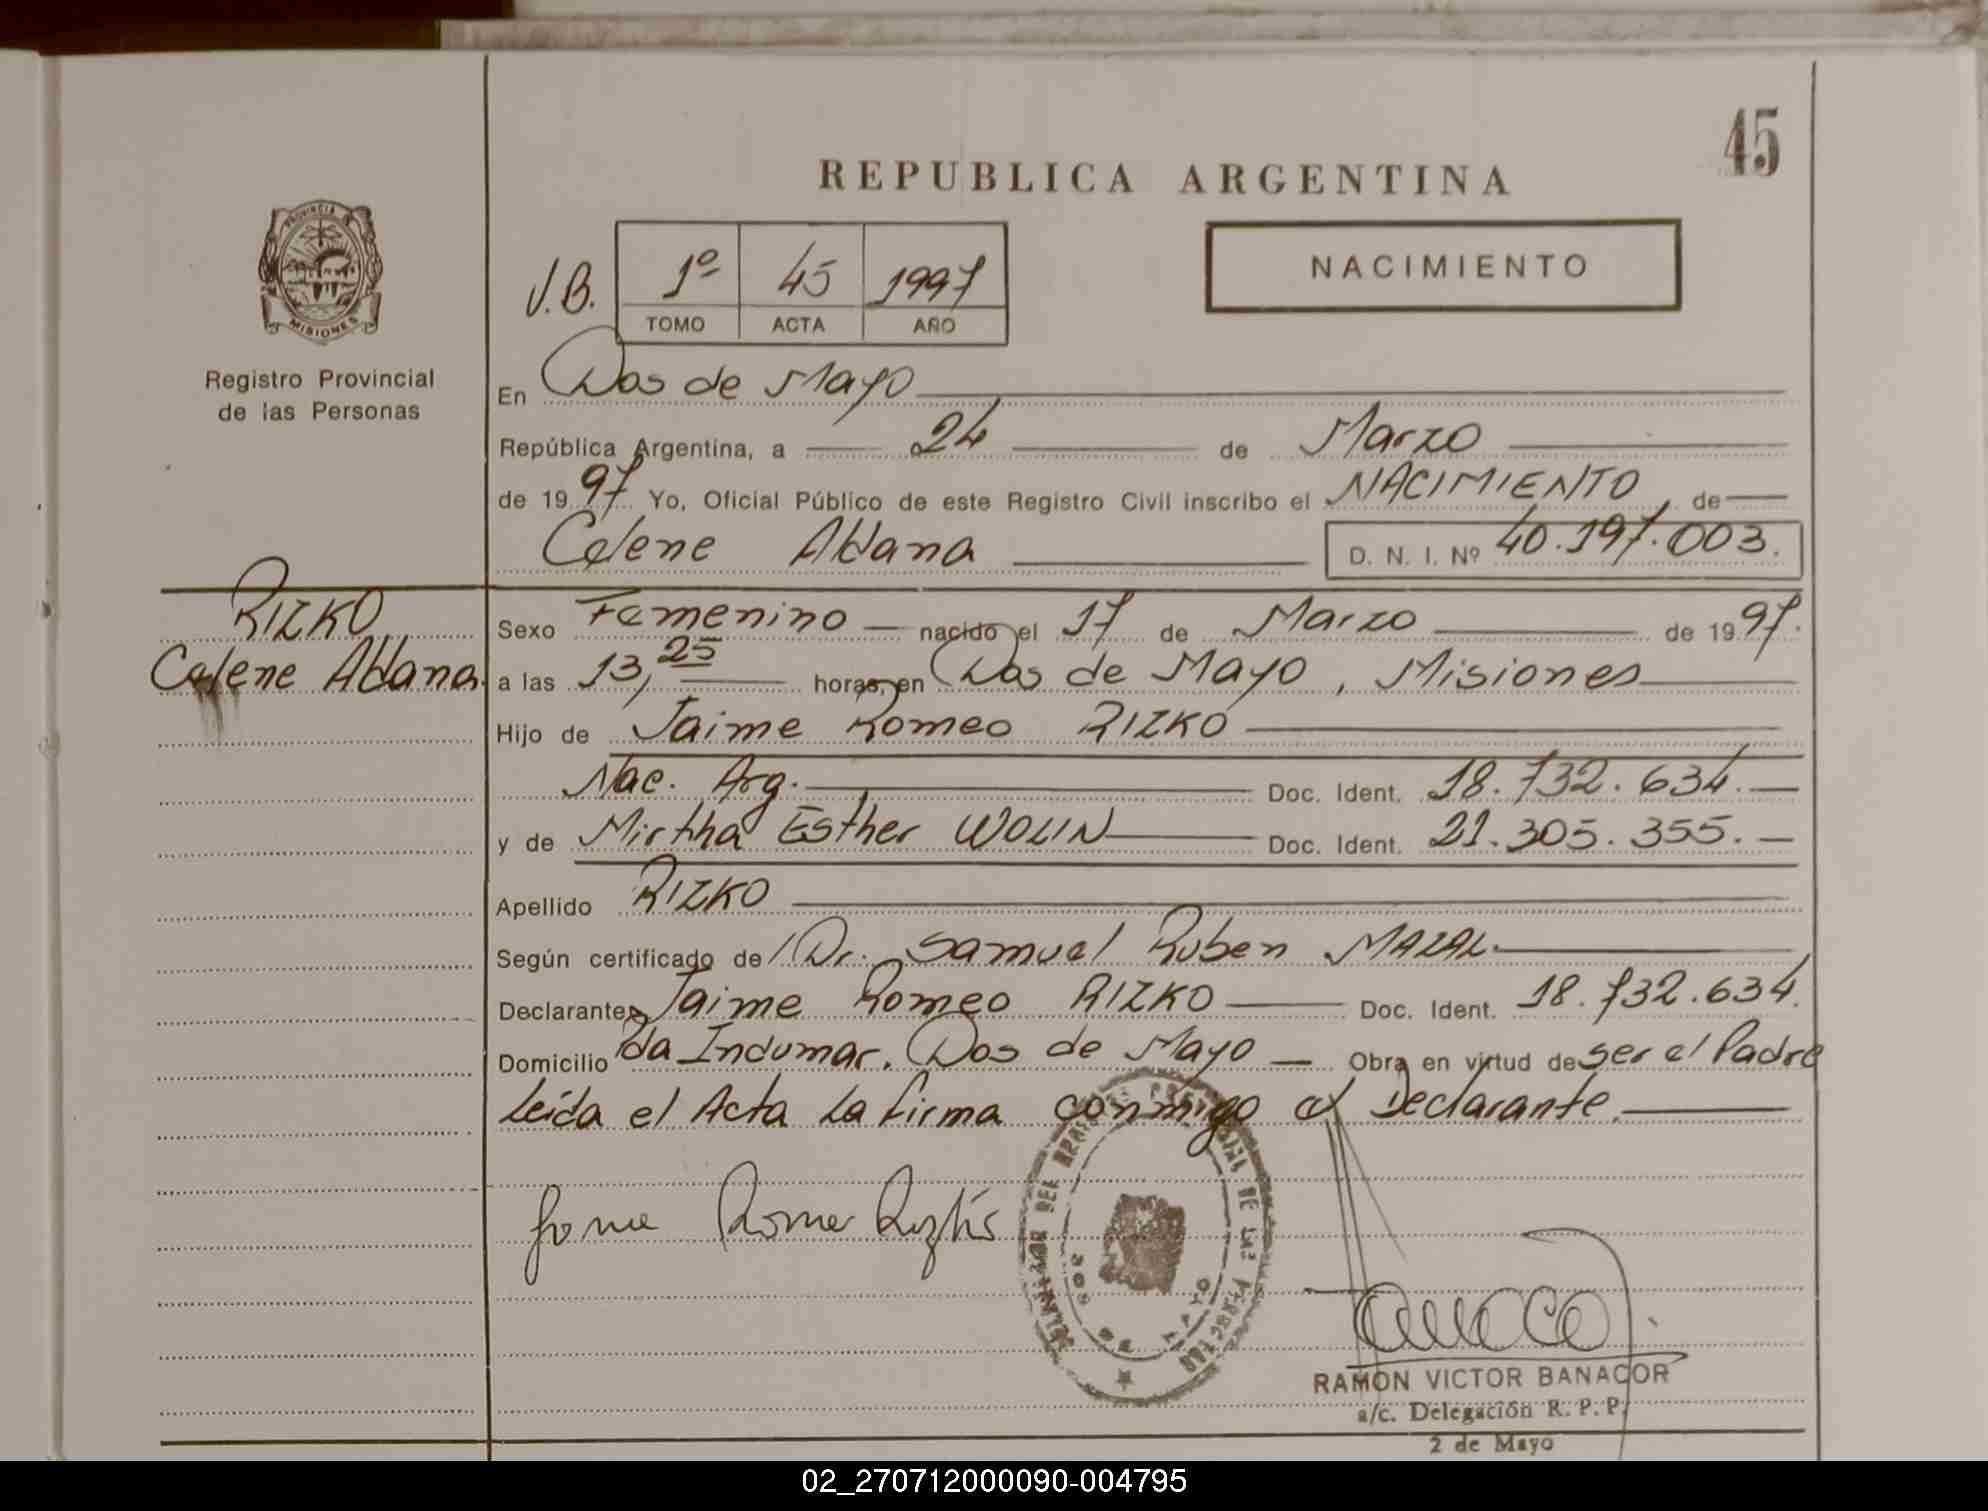 45
REPUBLICA ARGENTINA
PROVINCIA DE
MISIONES
Registro Provincial
de las Personas
J.B.
1º 45 1997
TOMO ACTA AÑO
NACIMIENTO
En Dos de Mayo
República Argentina, a 24 de Marzo
de 1997 Yo, Oficial Público de este Registro Civil inscribo el NACIMIENTO, de
Celene Aldana D. N. I. Nº 40.197.003.
RIZKO
Celene Aldana.
Sexo Femenino nacido el 17 de Marzo de 1997.
a las 13,25 horas, en Dos de Mayo, Misiones
Hijo de Jaime Romeo RIZKO
Nac. Arg. Doc. Ident. 18.732.634.
y de Mirtha Esther WOLIN Doc. Ident. 21.305.355.
Apellido RIZKO
Según certificado de Dr. Samuel Ruben MAZAL
Declarante Jaime Romeo RIZKO Doc. Ident. 18.732.634.
Domicilio Pda Indumar. Dos de Mayo Obra en virtud de ser el Padre
Leída el Acta La firma conmigo el Declarante.
DOS DE MAYO
RAMON VICTOR BANACOR
a/c. Delegación R. P. P.
2 de Mayo
02_270712000090-004795